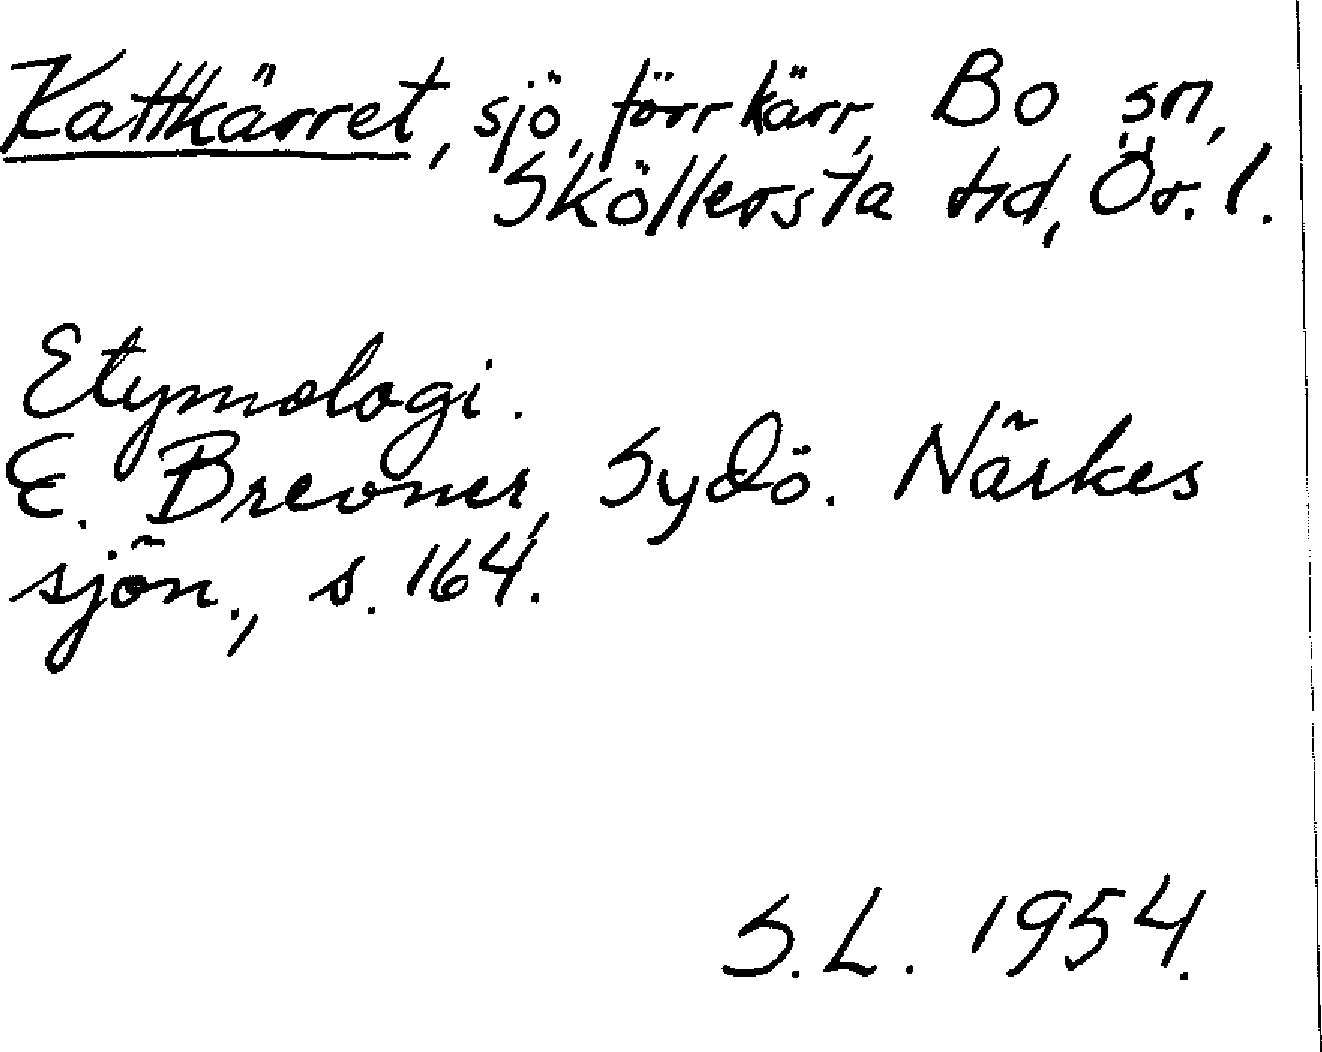 Kattkärret, sjö, förr kärr, Bo sn,
Sköllersta hd, Ör. l.
Etymologi.
E. Brevner, Sydö. Närkes
sjön., s. 164.
S. L. 1954.